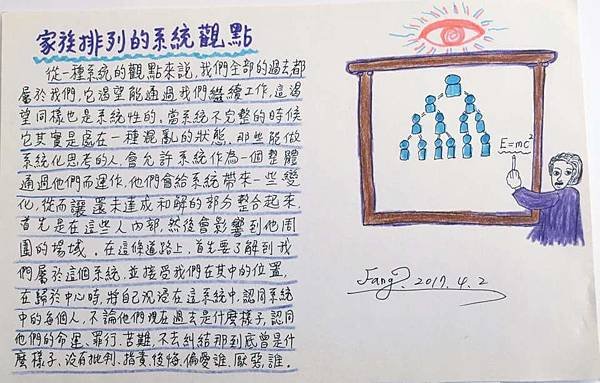 家族排列的系統觀點
從一種系統的觀點來說,我們全部的過去都
屬於我們,它渴望能通過我們繼續工作。這渴
望同樣也是系統性的。當系統不完整的時候
它其實是處在一種混亂的狀態。那些能做
系統化思考的人,會允許系統作為一個整體
通過他們而運作。他們會給系統帶來一些變
化,從而讓還未達成和解的部分整合起來。
首先是在這些人內部,然後會影響到他周
圍的場域。在這條道路上,首先要了解到我
們屬於這個系統,並接受我們在其中的位置。
在歸於中心時,將自己沉浸在這系統中,認同系統
中的每個人,不論他們現在過去是什麼樣子,認同
他們的命運、罪行、苦難,不去糾結那到底曾是什
麼樣子、沒有批判、指責後悔、偏愛誰、厭惡誰。
E=mc²
Fang. 2017.4.2